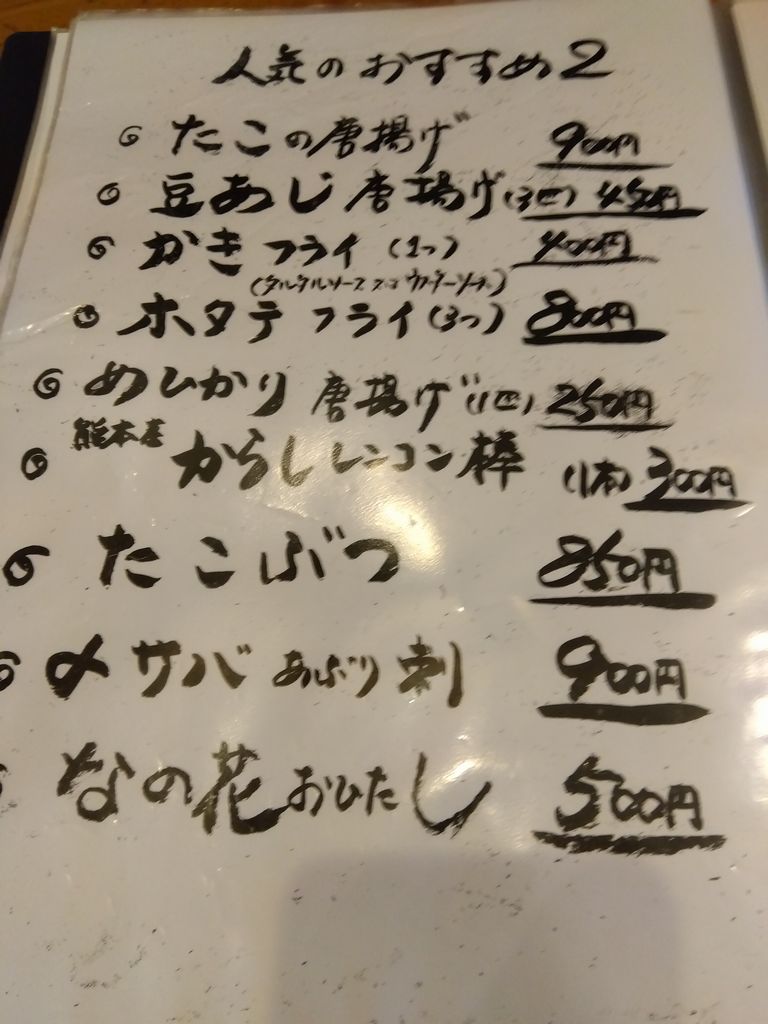 人気のおすすめ2
たこの唐揚げ 900円
豆あじ唐揚げ(3匹) 450円
かきフライ(1つ) 400円
(タルタルソース ウスターソース)
ホタテフライ(3つ) 800円
めひかり唐揚げ(1匹) 250円
熊本産 からしレンコン棒 (1本) 300円
たこぶつ 850円
〆サバあぶり刺 900円
なの花おひたし 500円